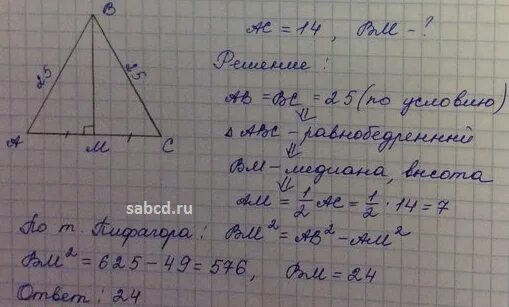 B
25
25
A
M
C
AC = 14, BM - ?
Решение:
AB = BC = 25 (по условию)
⇓
Δ ABC - равнобедренний
⇓
BM - медиана, высота
⇓
AM = 1/2 AC = 1/2 · 14 = 7
sabcd.ru
По т. Пифагора: BM² = AB² - AM²
BM² = 625 - 49 = 576, BM = 24
Ответ: 24